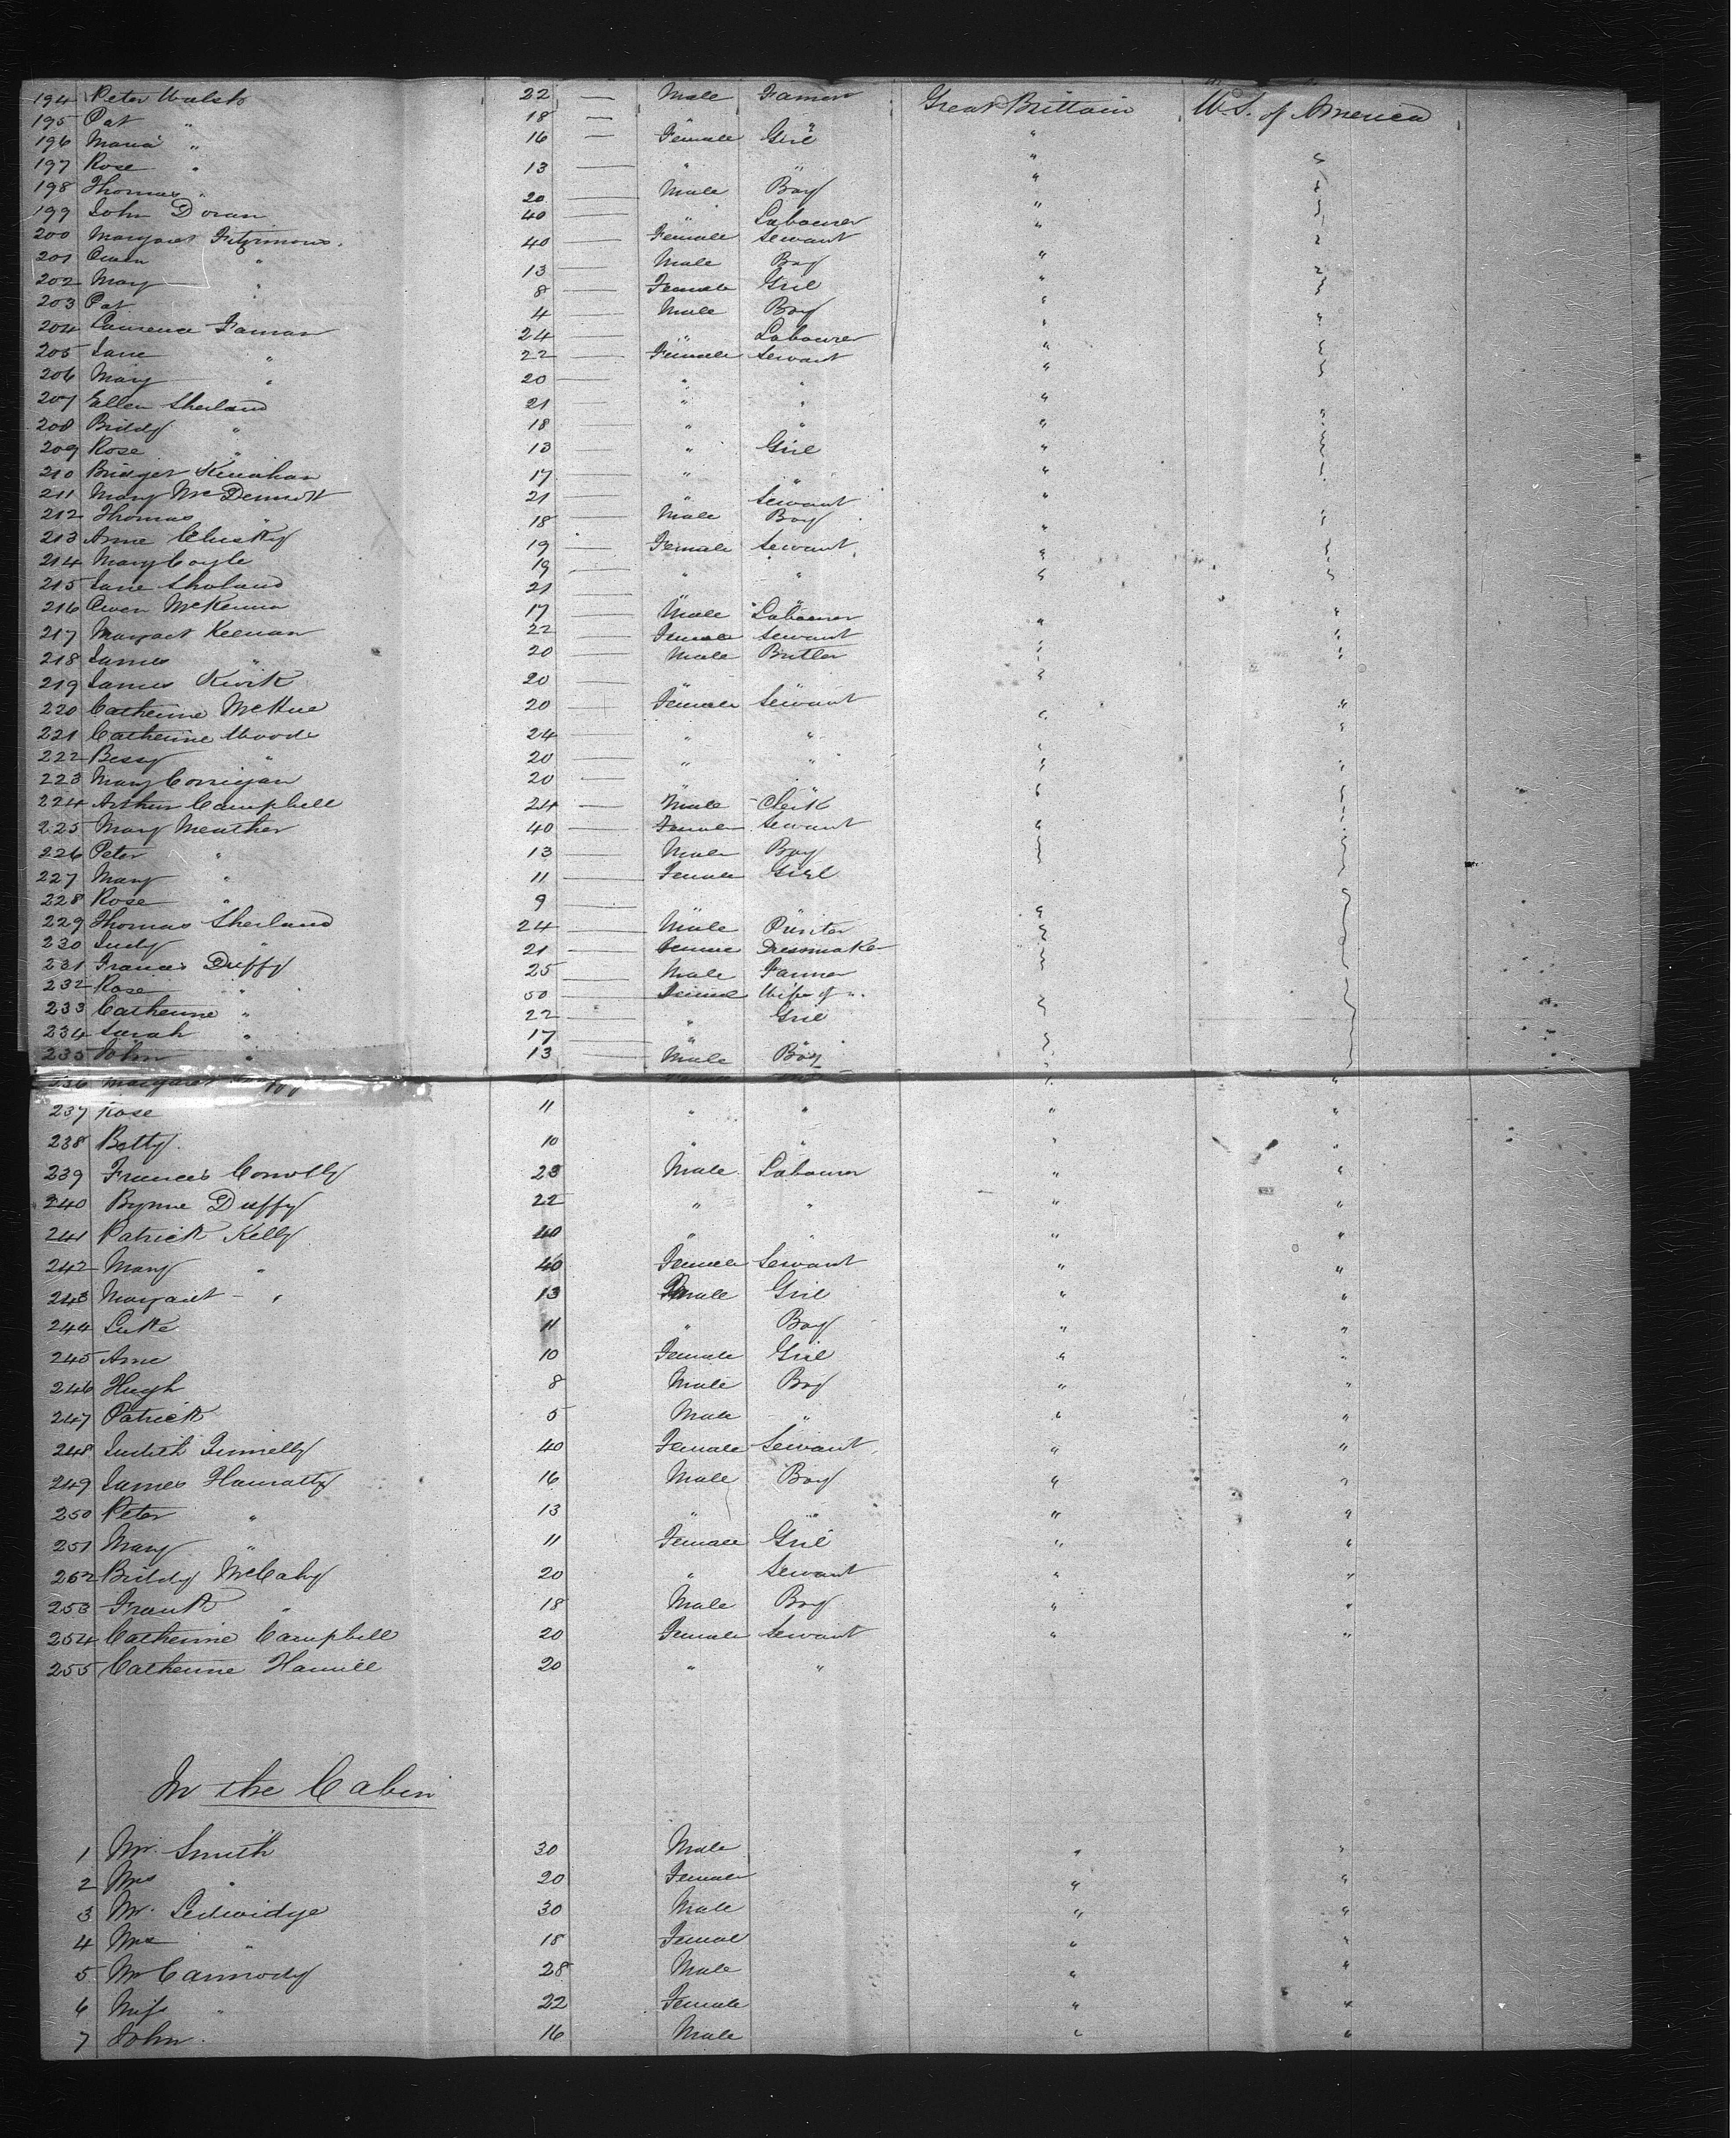 194 Peter Walsh 22 — Male Farmer Great Brittain U.S. of America
195 Pat " 18 — " "
196 Maria " 16 — Female Girl "
197 Rose " 13 — " " "
198 Thomas " 20 — Male Boy " "
199 John Doran 40 — " Labourer " "
200 Margaret Fitzimons. 40 — Female Servant " "
201 Owen " 13 — Male Boy " "
202 Mary " 8 — Female Girl " "
203 Pat 4 — Male Boy " "
204 Laurence Farnan 24 — " Labourer " "
205 Jane " 22 — Female Servant " "
206 Mary " 20 — " " " "
207 Ellen Sherland 21 — " " " "
208 Briddy " 18 — " " " "
209 Rose " 13 — " Girl " "
210 Bridget Kinahan 17 — " " " "
211 Mary McDermott 21 — " Servant "
212 Thomas " 18 — Male Boy " "
213 Anne Clusky 19 — Female Servant " "
214 Mary Coyle 19 — " " " "
215 Jane Sholand 21 — " "
216 Owen McKenna 17 — Male Labourer "
217 Margaret Keenan 22 — Female Servant " "
218 James " 20 — Male Butler " "
219 James Kirk 20 — " " "
220 Catherine McHue 20 — Female Servant " "
221 Catherine Woods 24 — " " "
222 Bessy " 20 — " " " "
223 Mary Corrigan 20 — " " "
224 Arthur Campbell 24 — Male Clerk " "
225 Mary Meather 40 — Female Servant " "
226 Peter " 13 — Male Boy " "
227 Mary " 11 — Female Girl
228 Rose " 9 — " "
229 Thomas Sherland 24 — Male Printer "
230 Judy " 21 — Dressmaker "
231 Francis Duffy 25 — Male Farmer "
232 Rose " 50 — Wife of "
233 Catherine " 22 — " Girl "
234 Sarah " 17 — " "
235 John " 13 — Male Boy "
236 Margaret
237 Rose 11 " " " "
238 Betty 10 " " " "
239 Francis Conolly 23 Male Labourer " "
240 Byrne Duffy 22 " " " "
241 Patrick Kelly 40 " " " "
242 Mary " 40 Female Servant " "
243 Margaret - " 13 Female Girl " "
244 Luke 11 " Boy " "
245 Anne 10 Female Girl " "
246 Hugh 8 Male Boy " "
247 Patrick 5 Male " " "
248 Judith Dunnelly 40 Female Servant " "
249 James Hanratty 16 Male Boy " "
250 Peter " 13 " " " "
251 Mary " 11 Female Girl " "
252 Briddy McCaby 20 " Servant " "
253 Frank " 18 Male Boy " "
254 Catherine Campbell 20 Female Servant " "
255 Catherine Hamill 20 " "
In the Cabin
1 Mr. Smith 30 Male " "
2 Mrs " 20 Female " "
3 Mr. Ledwidge 30 Male " "
4 Mrs " 18 Femal " "
5 Mr Carmody 28 Male " "
6 Miss " 22 Female " "
7 John 16 Male " "